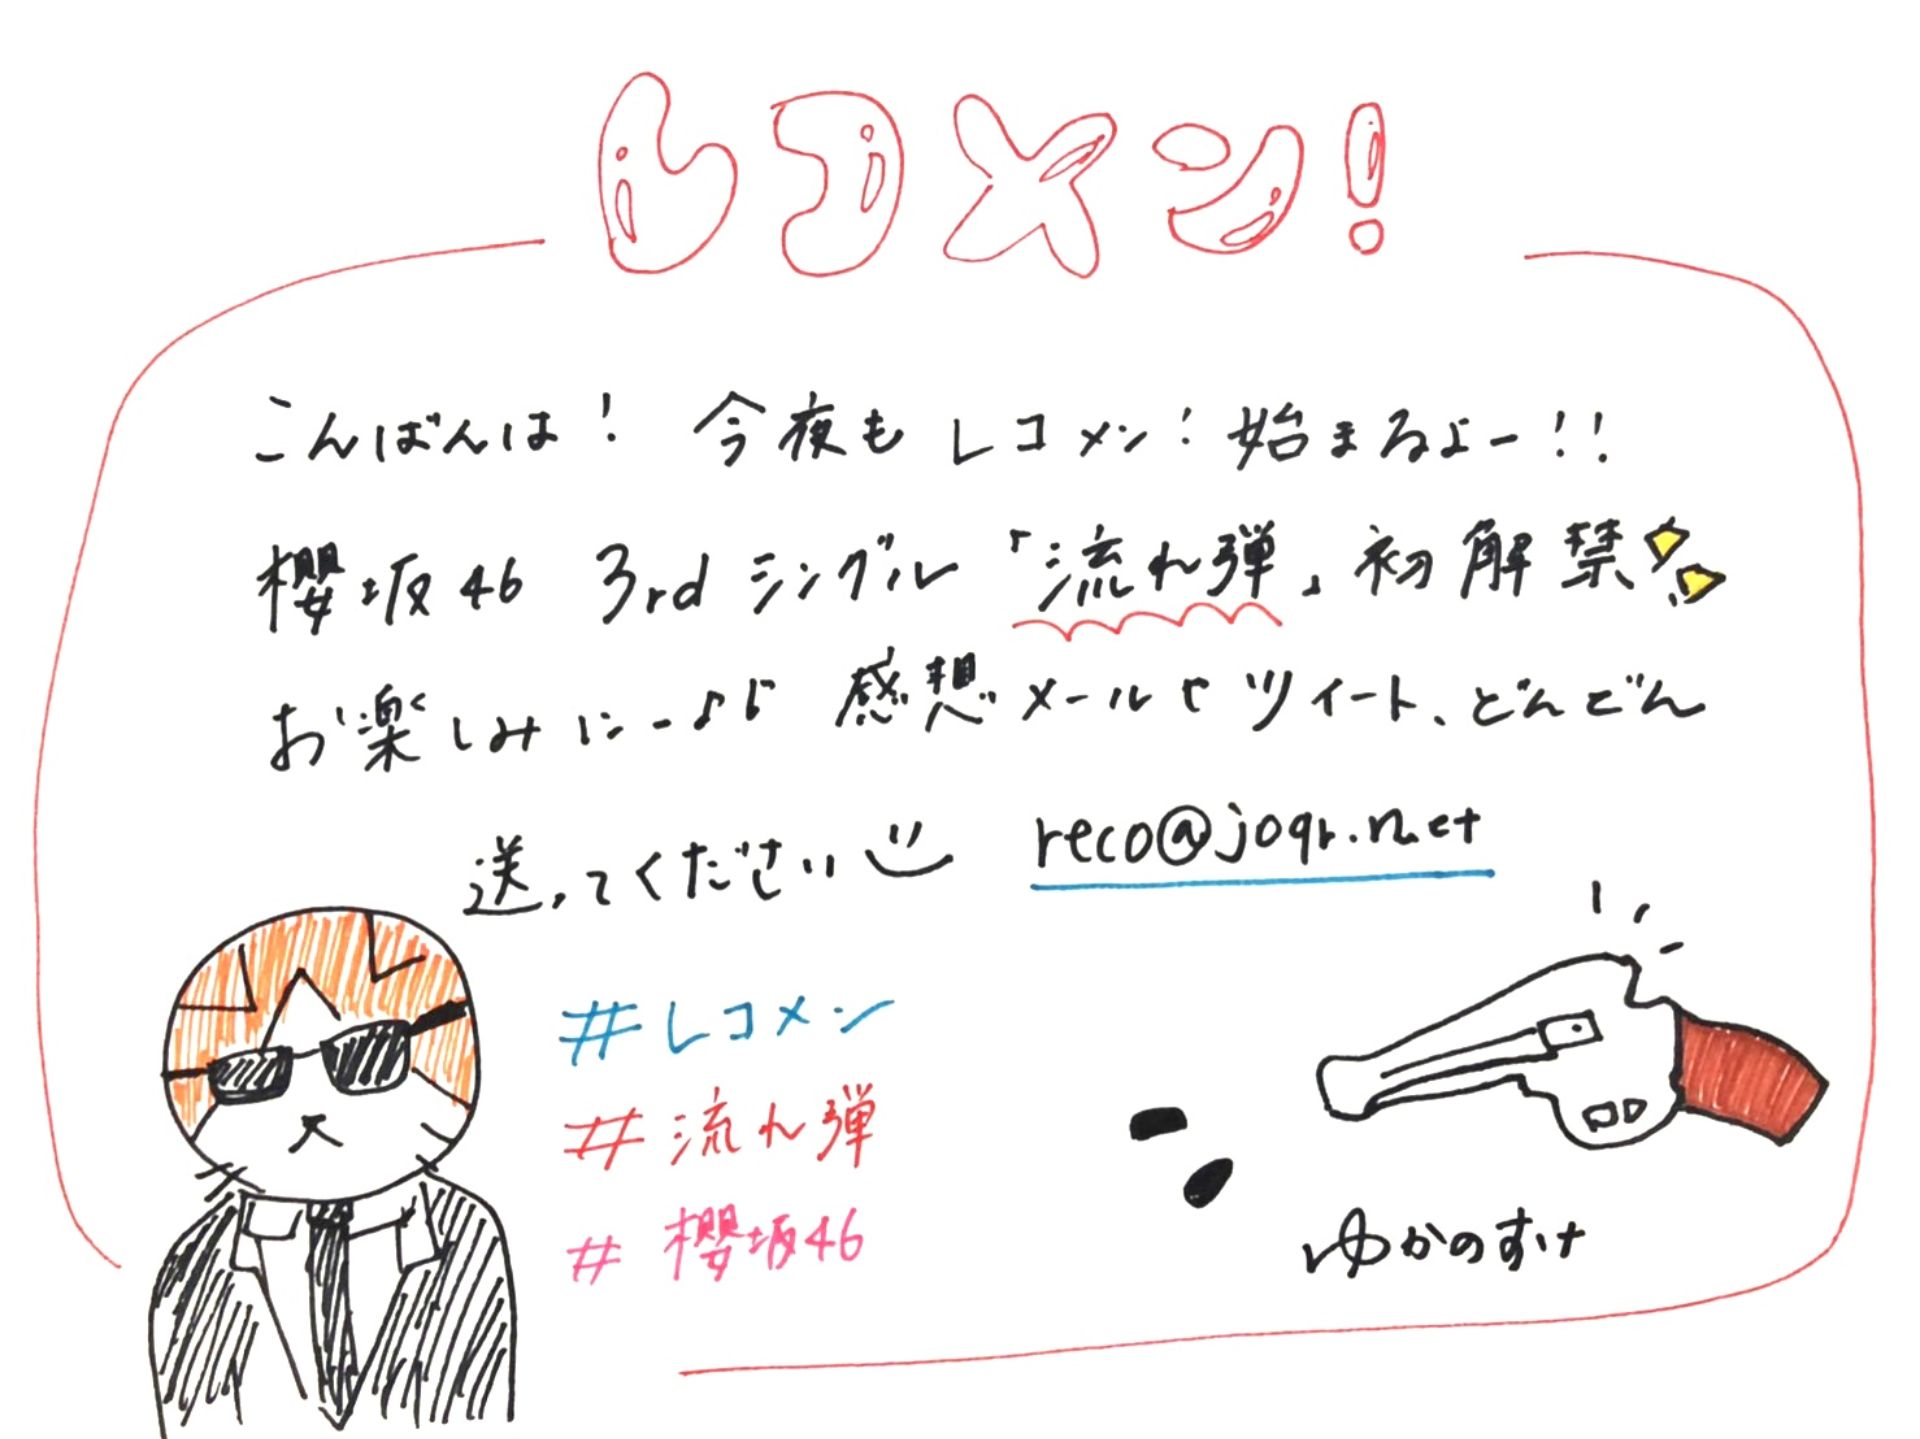 レコメン!
こんばんは! 今夜もレコメン!始まるよー!!
櫻坂46 3rdシングル「流れ弾」初解禁
お楽しみにー♪♪ 感想メールやツイート、どんどん
送ってください reco@joqr.net
#レコメン
#流れ弾
#櫻坂46
ゆかのすけ